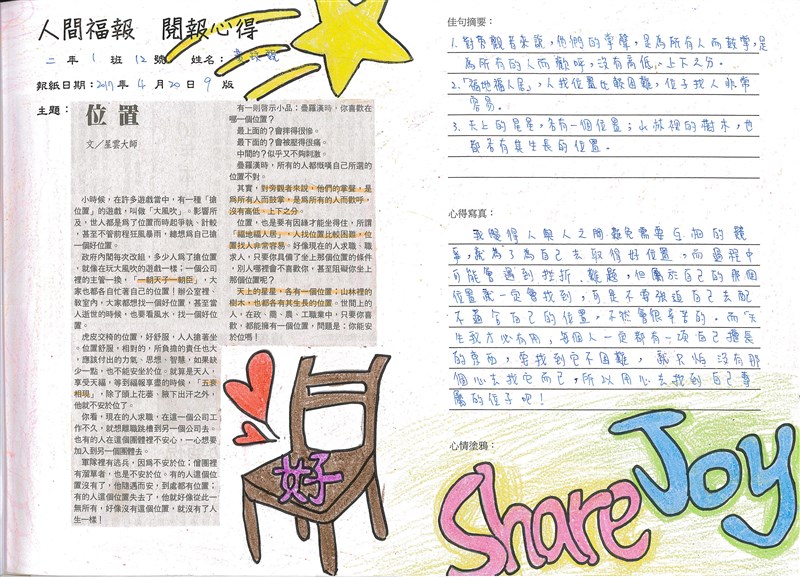 人間福報　閱報心得
二年1班12號　姓名：
報紙日期：2017年4月20日9版
主題：
位置
文／星雲大師
小時候，在許多遊戲當中，有一種「搶
位置」的遊戲，叫做「大風吹」。影響所
及，世人都是為了位置而時起爭執、計較
，甚至不管前程狂風暴雨，總想為自己搶
一個好位置。
政府內閣每次改組，多少人為了搶位置
，就像在玩大風吹的遊戲一樣；一個公司
裡的主管一換，「一朝天子一朝臣」，大
家也都各自忙著自己的位置！辦公室裡、
教室內，大家都想找一個好位置，甚至當
人逝世的時候，也要看風水，找一個好位
置。
虎皮交椅的位置，好舒服，人人搶著坐
。位置舒服，相對的，所負擔的責任也大
，應該付出的力氣、思想、智慧，如果缺
少一點，也不能安坐於位。就算是天人，
享受天福，等到福報享盡的時候，「五衰
相現」，除了頭上花萎、腋下出汗之外，
他就不安於位了。
你看，現在的人求職，在這一個公司工
作不久，就想離職跳槽到另一個公司去。
也有的人在這個團體裡不安心，一心想要
加入到另一個團體去。
軍隊裡有逃兵，因為不安於位；僧團裡
有溜單者，也是不安於位。有的人這個位
置沒有了，他隨遇而安，到處都有位置；
有的人這個位置失去了，他就好像從此一
無所有，好像沒有這個位置，就沒有了人
生一樣！
有一則啓示小品：疊羅漢時，你喜歡在
哪一個位置？
最上面的？會摔得很慘。
最下面的？會被壓得很痛。
中間的？似乎又不夠刺激。
疊羅漢時，所有的人都慨嘆自己所選的
位置不對。
其實，對旁觀者來說，他們的掌聲，是
為所有人而鼓掌，是為所有的人而歡呼，
沒有高低、上下之分。
位置，也是要有因緣才能坐得住，所謂
「福地福人居」，人找位置比較困難，位
置找人非常容易。好像現在的人求職、職
求人，只要你具備了坐上那個位置的條件
，別人哪裡會不喜歡你，甚至阻礙你坐上
那個位置呢？
天上的星星，各有一個位置；山林裡的
樹木，也都各有其生長的位置。世間上的
人，在政、商、農、工職業中，只要你喜
歡，都能擁有一個位置，問題是：你能安
於位嗎！
好
佳句摘要：
1.對旁觀者來說，他們的掌聲，是為所有人而鼓掌，是
為所有的人而歡呼，沒有高低、上下之分。
2.「福地福人居」，人找位置比較困難，位子找人非常
容易。
3.天上的星星，各有一個位置；山林裡的樹木，也
都各有其生長的位置。
心得寫真：
我覺得人與人之間難免需要互相的競
爭，就為了為自己去取得好位置，而過程中
可能會遇到挫折、難題，但屬於自己的那個
位置就一定會找到，可是不要強迫自己去配
不適合自己的位置，不然會很辛苦的。而「天
生我才必有用」每個人一定都有一項自己擅長
的東西，要找到它不困難，就只怕沒有那
個心去找它而已，所以用心去找到自己專
屬的位子吧！
心情塗鴉：
Share Joy